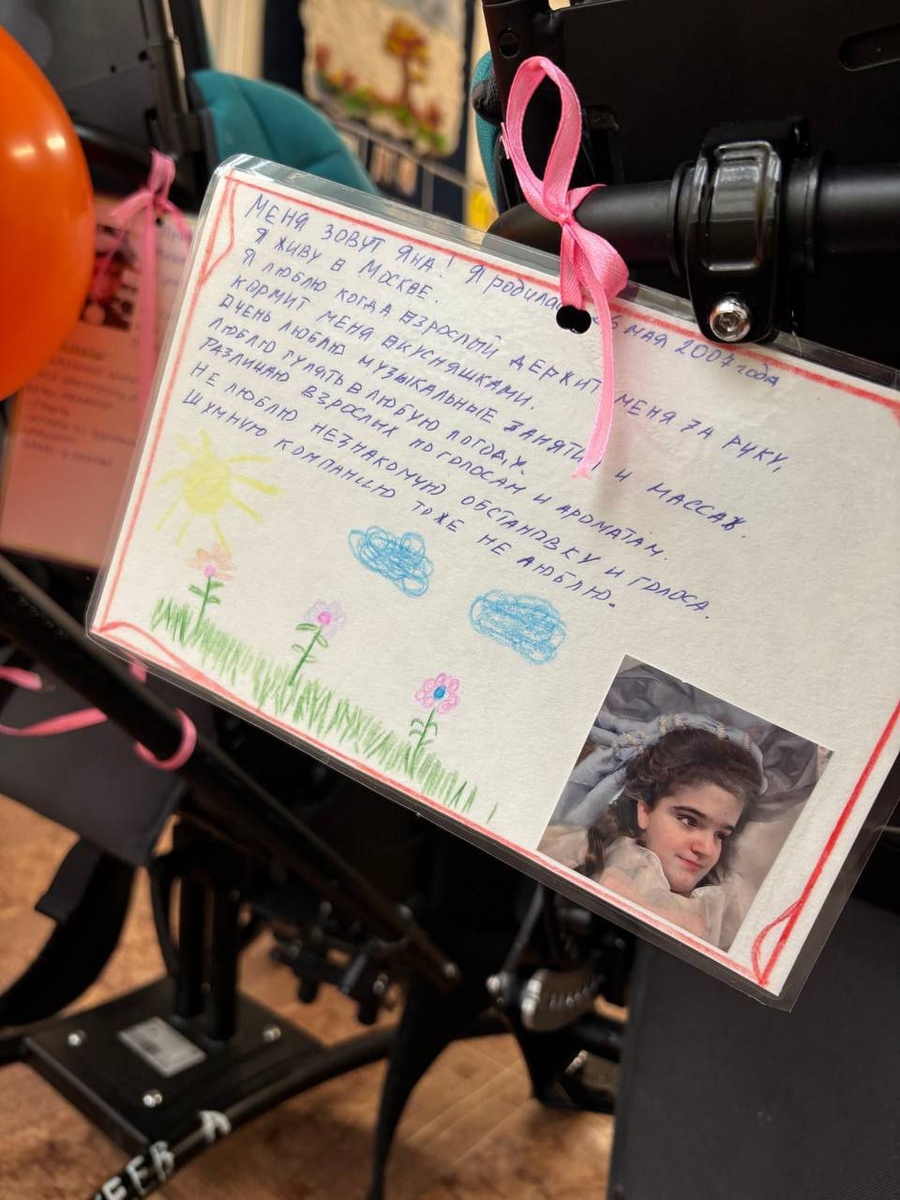 МЕНЯ ЗОВУТ ЯНА! Я родилась 26 МАЯ 2007 года
Я ЖИВУ В МОСКВЕ.
Я ЛЮБЛЮ КОГДА ВЗРОСЛЫЙ ДЕРЖИТ МЕНЯ ЗА РУКУ,
КОРМИТ МЕНЯ ВКУСНЯШКАМИ.
ОЧЕНЬ ЛЮБЛЮ МУЗЫКАЛЬНЫЕ ЗАНЯТИЯ И МАССАЖ.
ЛЮБЛЮ ГУЛЯТЬ В ЛЮБУЮ ПОГОДУ.
РАЗЛИЧАЮ ВЗРОСЛЫХ ПО ГОЛОСАМ И АРОМАТАМ.
НЕ ЛЮБЛЮ НЕЗНАКОМУЮ ОБСТАНОВКУ И ГОЛОСА.
ШУМНУЮ КОМПАНИЮ ТОЖЕ НЕ ЛЮБЛЮ.